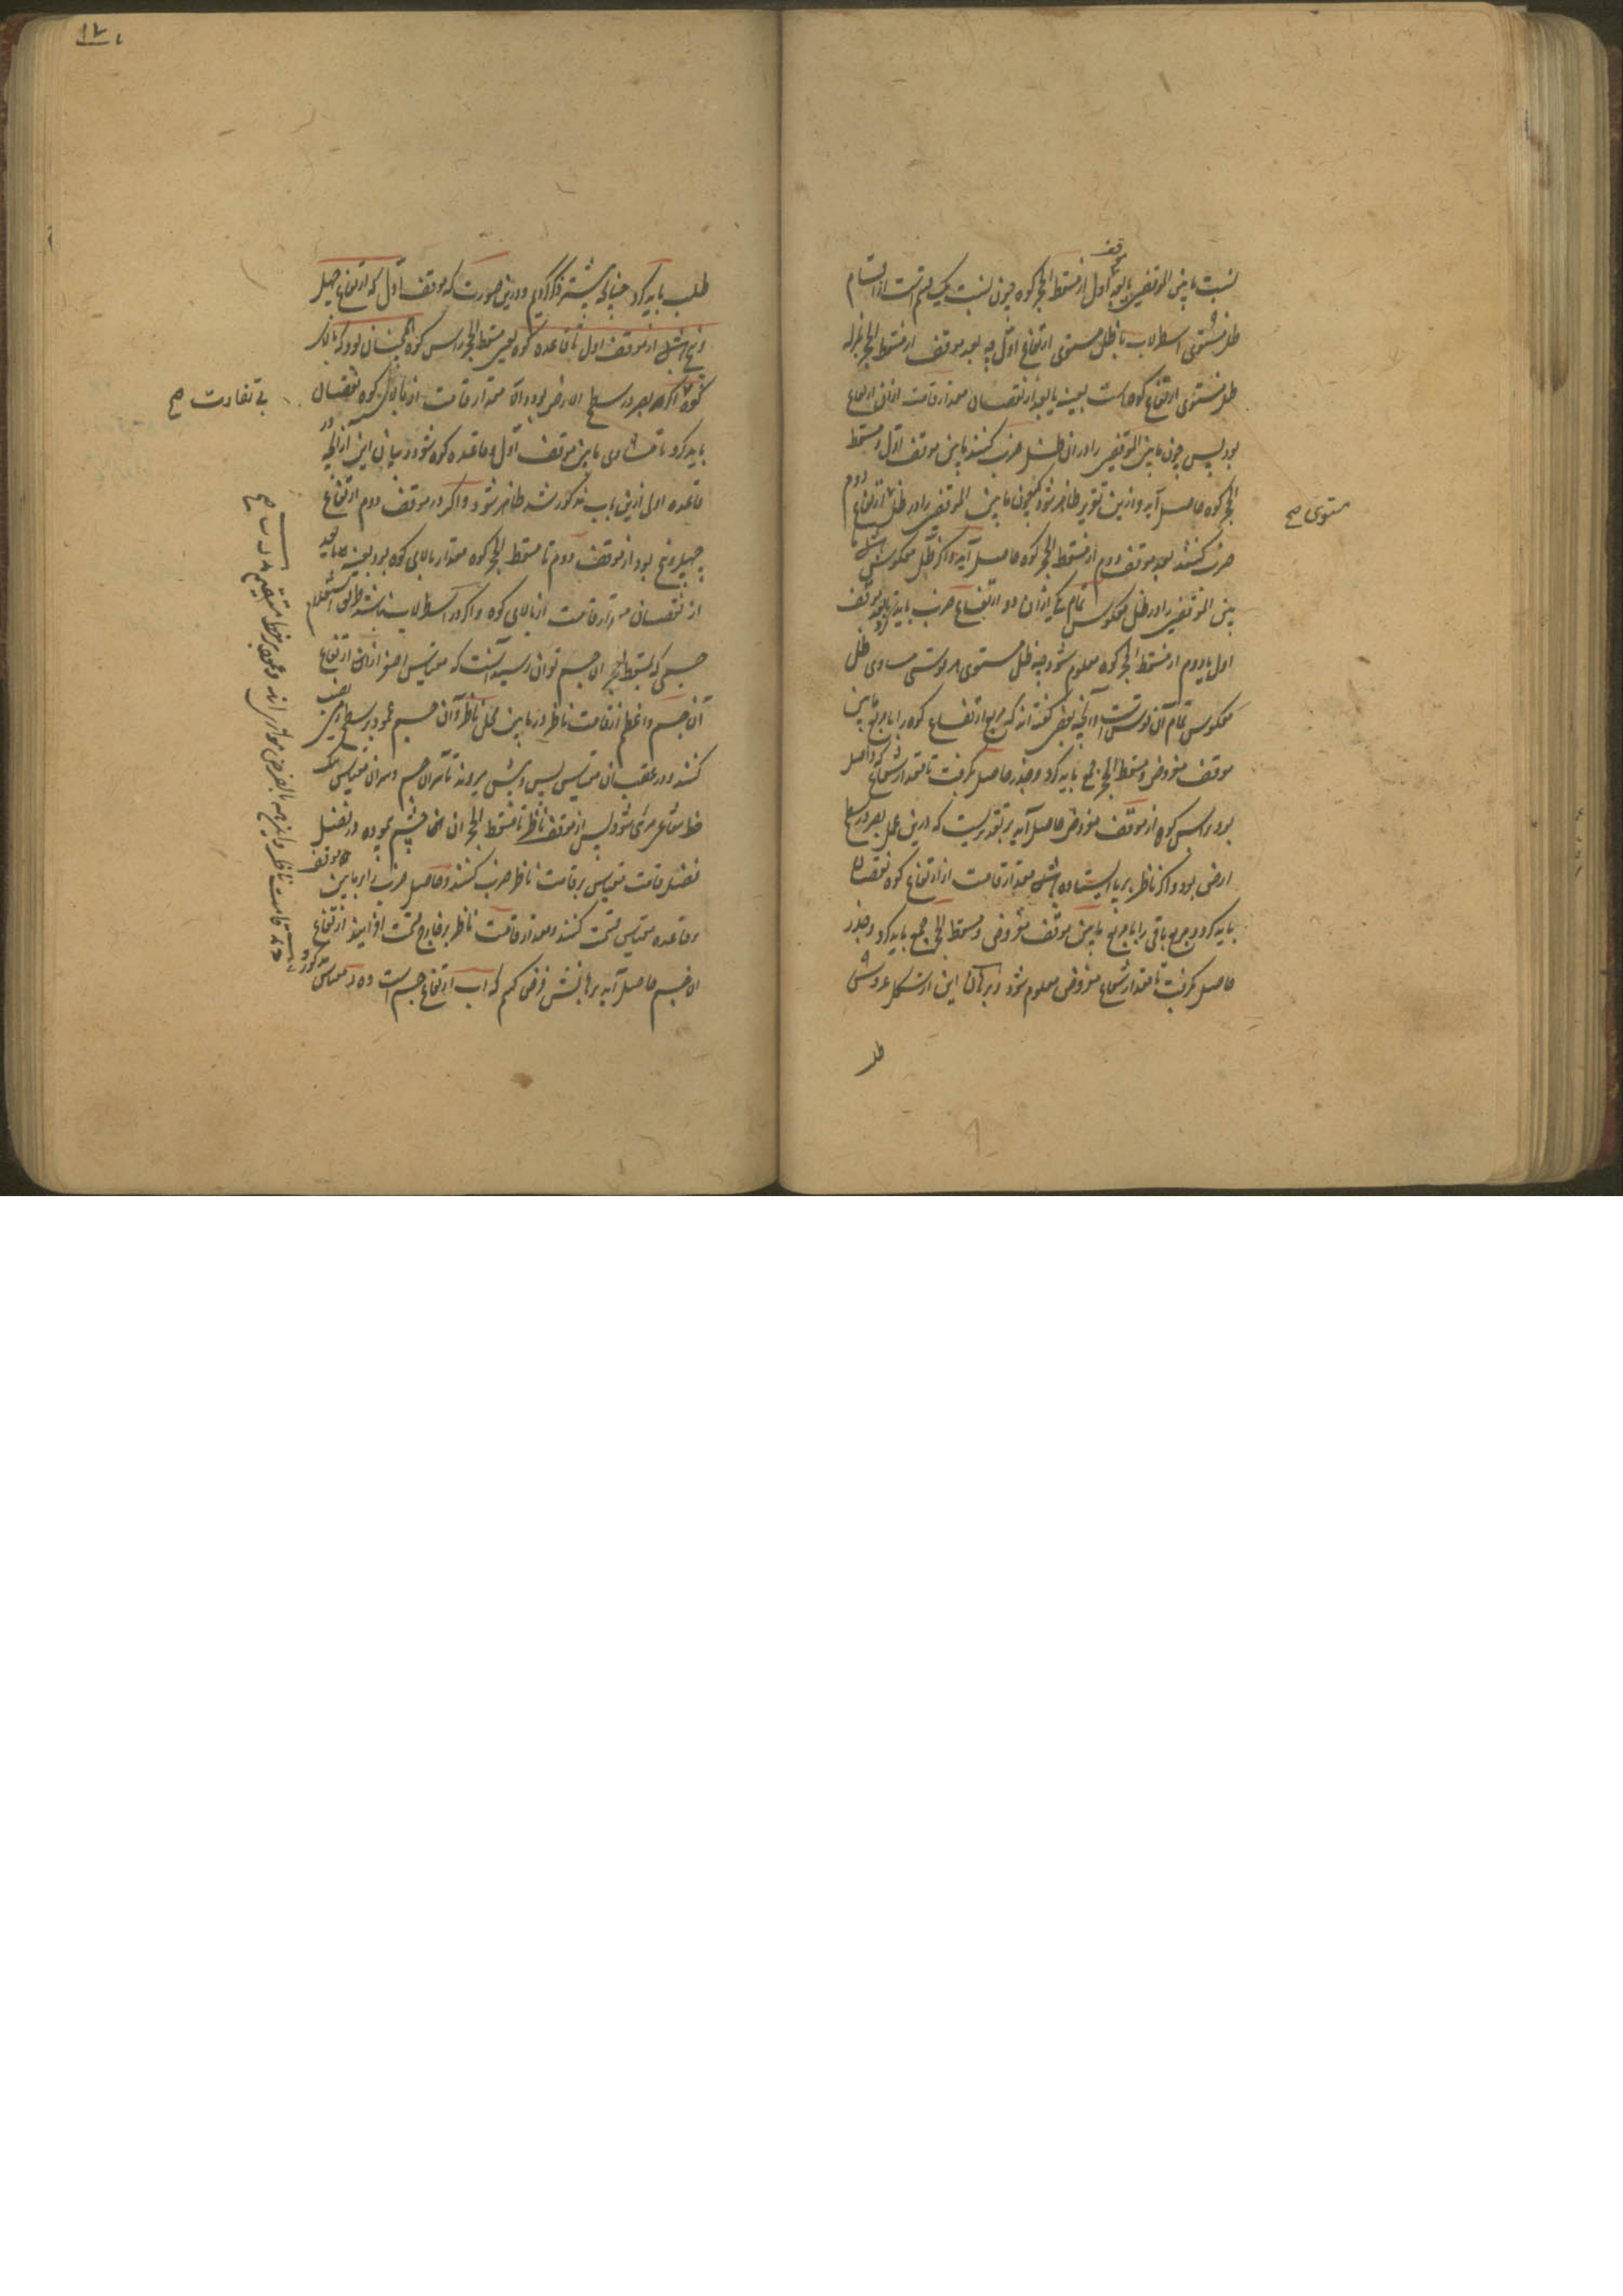 موقف
نسبت مابین الموقفین با بعد اول از مسقط الحجر کوه چون نسبت یک قسم است از اقسام
ظل مستوی اسطرلاب با ظل مستوی ارتفاع اول چه بعد موقف از مسقط الحجر بمنزله
ظل مستوی ارتفاع کوهست بعینه یا بعد از نقصان مقدار قامت از ان ارتفاع
بود پس چون مابین الموقفین را در ان ظل ضرب کنند مابین موقف اول و مسقط
الحجر کوه حاصل آید و ازین تقریر ظاهر شود که چون مابین الموقفین را در ظل ارتفاع دوم
مستوی صح
ضرب کنند بعد موقف دوم از مسقط الحجر کوه حاصل آید و اگر ظل معکوس باشد ما
بین الموقفین را در ظل معکوس تمام یکی از ان دو ارتفاع ضرب باید کرد تا بعد موقف
اول یا دوم از مسقط الحجر کوه معلوم شود چه ظل مستوی هر قوسی مساوی ظل
معکوس تمام آن قوس است و آنچه بعضی گفته اند که مربع ارتفاع کوه را با مربع مابین
موقف مفروض و مسقط الحجر جمع باید کرد و جذر حاصل گرفت تا مقدار شعاع که واصل
بود براس کوه از موقف مفروض حاصل آید بر تقدیریست که درین عمل بصر در سطح
ارض بود و اگر ناظر بر پا ایستاده باشد مقدار قامت از ارتفاع کوه نقصان
باید کرد و مربع باقی را با مربع مابین موقف مفروض و مسقط الحجر جمع باید کرد و جذر
حاصل گرفت تا مقدار شعاع مفروض معلوم شود و برهان این از شکل عروس
طلب
طلب باید کرد چنانچه پیشتر ذکر کردیم و درین صورت که موقف اول که ارتفاع چهل
و پنج باشد از موقف اول تا قاعده کوه یعنی مسقط الحجر راس کوه همچنان بود که بالای
کوه اگر بصر در سطح الارض بود و الا مقدار قامت از بالای کوه نقصان
بی تفاوت صح
باید کرد تا مساوی مابین موقف اول و قاعده کوه شود و بیان این از آنچه در
قاعده اولی ازین باب مذکور شد ظاهر شود و اگر در موقف دوم ارتفاع
چهل و پنج بود از موقف دوم تا مسقط الحجر کوه مقدار بالای کوه بود بعینه یا بعد
از نقصان مقدار قامت از بالای کوه و اگر در اسطرلاب نباشد طریق استعلام
جسمی که بمسقط الحجر ان جسم توان رسید آنست که مقیاس اصغر از ان ارتفاع
آن جسم و اعظم از قامت ناظر در مابین محل ناظر و آن جسم عمود بر سطح ارض نصب
کنند و در عقب آن مقیاس پس و پیش میروند تا سر ان جسم و سر ان مقیاس بیک
خط شعاعی مرئی شود پس از موقف ناظر تا مسقط الحجر ان جسم پیموده در فضل
فضل قامت مقیاس بر قامت ناظر ضرب کنند و حاصل ضرب را بر مابین موقف
و قاعده مقیاس قسمت کنند و مقدار قامت ناظر بر خارج قسمت افزایند ارتفاع
ان جسم حاصل آید برهانش فرض کنیم که ا ب ارتفاع جسم است و ه د مقیاس مذکور و